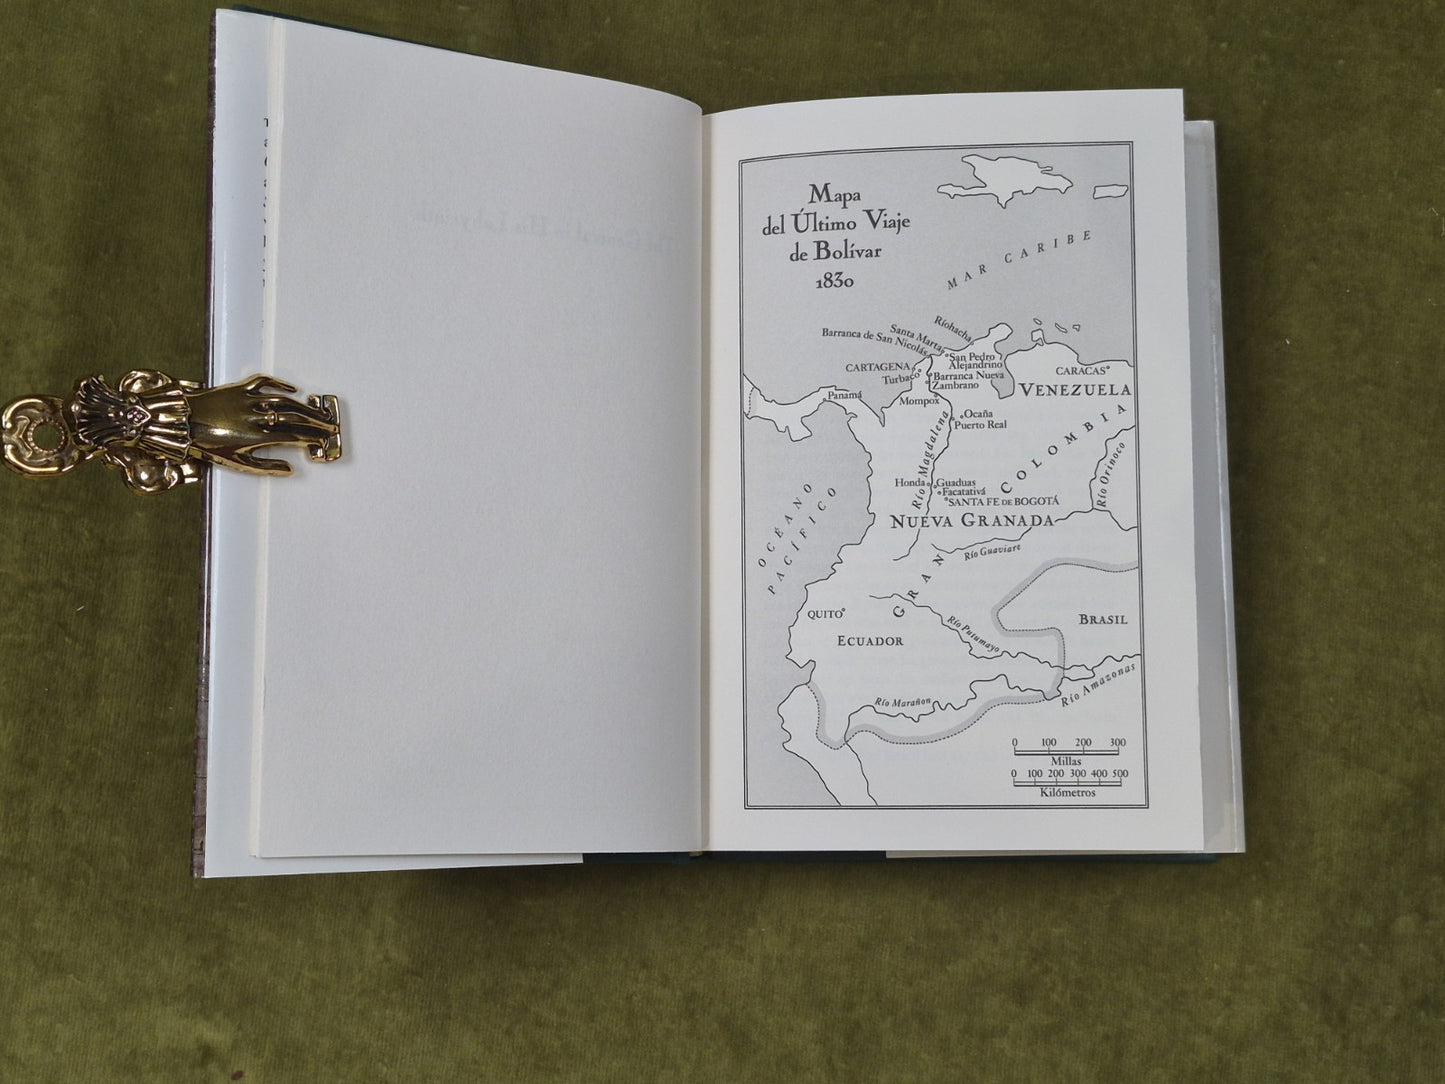 Mapa
del Último Viaje
de Bolívar
1830
MAR CARIBE
Ríohacha
Santa Marta
Barranca de San Nicolás
San Pedro
Alejandrino
CARTAGENA
Turbaco
Barranca Nueva
Zambrano
CARACAS
VENEZUELA
Panamá
Mompox
Ocaña
Puerto Real
Río Magdalena
GRAN COLOMBIA
Río Orinoco
Honda
Guaduas
Facatativá
SANTA FE DE BOGOTÁ
NUEVA GRANADA
OCÉANO
PACÍFICO
Río Guaviare
QUITO
ECUADOR
Río Putumayo
BRASIL
Río Marañon
Río Amazonas
0 100 200 300
Millas
0 100 200 300 400 500
Kilómetros